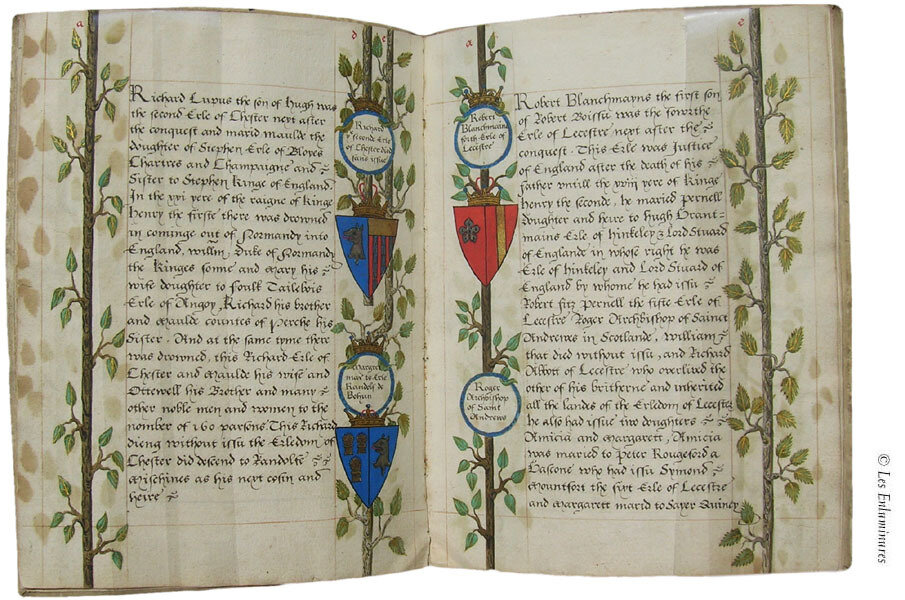 a
Richard Lupus the son of Hugh was
the second Erle of Chester next after
the conquest and maried maulde the
doughter of Stephen Erle of Bloyes
Chartres and Champaigne and
Sister to Stephen Kinge of England
In the xxj yere of the raigne of Kinge
Henry the firste there was drowned
in cominge out of Normandy into
England, willm Duke of Normandy
the Kinges sonne and Mary his
wife doughter to foulk Tailebois
Erle of Angoy, Richard his brother
and Maulde countes of Perche his
Sister. And at the same tyme there
was drowned, this Richard Erle of
Chester and Maulde his wife and
Ottewell his Brother and many
other noble men and women to the
nomber of 160 parsons. This Richard
dieng without issu the Erledom of
Chester did descend to Randolfe
Mischines as his next cosin and
heire
d
Richard
seconde Erle
of Chester died
sans issue
Margret
mar to Erle
Randolf de
Bohun
a
Robert
Blanchmains
forth Erle of
Lecestre
Roger
Archbishop
of Saint
Andrews
Robert Blanchmayns the first son
of Robert Boissu was the fowrthe
Erle of Lecestre next after the
conquest. This Erle was Justice
of England after the death of his
father untill the xviij yere of Kinge
Henry the seconde, he maried Pernell
doughter and heire to Hugh Grant=
mains Erle of Hinkeley & Lord Stuard
of Englande in whose right he was
Erle of Hinkeley and Lord Stuard of
England by whome he had issu
Robert fitz Pernell the fifte Erle of
Lecestre Roger Archbishop of Sainct
Andrewes in Scotlande, William
that died without issu, and Richard
Abbott of Lecestre who overlived the
other of his britherne and inherited
all the landes of the Erledom of Lecester
he also had issue two doughters
Amicia and Margarett, Amicia
was maried to Peter Rougeford a
Gascone who had issu Symond
Mountfort the sixt Erle of Lecestre
and Margarett marid to Sayer Quincy
e
© Les Enluminures